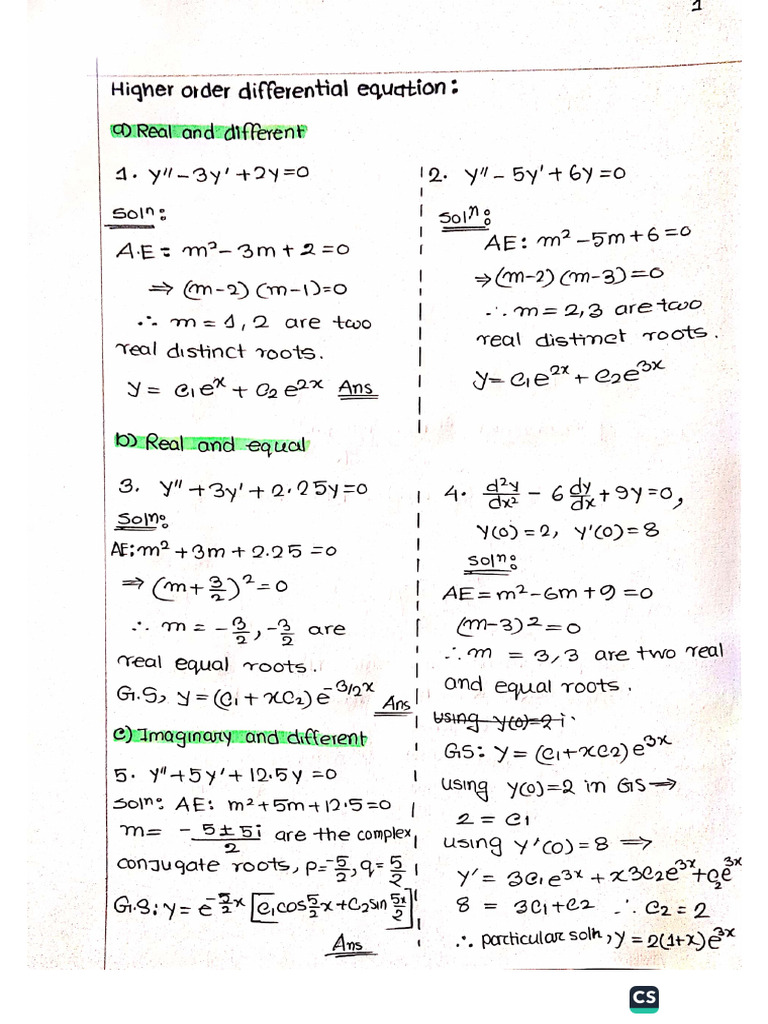 1
Higher order differential equation:
a) Real and different
1. y'' - 3y' + 2y = 0
Solⁿ:
A.E = m² - 3m + 2 = 0
⇒ (m-2) (m-1) = 0
∴ m = 1, 2 are two
real distinct roots.
y = c₁eˣ + c₂e²ˣ Ans
2. y'' - 5y' + 6y = 0
Solⁿ:
AE: m² - 5m + 6 = 0
⇒ (m-2) (m-3) = 0
∴ m = 2, 3 are two
real distinct roots.
y = c₁e²ˣ + c₂e³ˣ
b) Real and equal
3. y'' + 3y' + 2.25y = 0
Solⁿ:
AE: m² + 3m + 2.25 = 0
⇒ (m + 3/2)² = 0
∴ m = -3/2, -3/2 are
real equal roots.
G.S, y = (c₁ + xc₂) e^(-3/2x) Ans
4. d²y/dx² - 6 dy/dx + 9y = 0,
y(0) = 2, y'(0) = 8
Solⁿ:
AE = m² - 6m + 9 = 0
(m-3)² = 0
∴ m = 3, 3 are two real
and equal roots.
using y(0)=2 i.
GS: y = (c₁ + xc₂) e³ˣ
using y(0) = 2 in GS →
2 = c₁
using y'(0) = 8 ⇒
y' = 3c₁e³ˣ + x3c₂e³ˣ + c₂e³ˣ
8 = 3c₁ + c₂ ∴ c₂ = 2
∴ particular solⁿ, y = 2(1+x)e³ˣ
c) Imaginary and different
5. y'' + 5y' + 12.5y = 0
Solⁿ: AE: m² + 5m + 12.5 = 0
m = -5±5i/2 are the complex
conjugate roots, p = -5/2, q = 5/2
G.S: y = e^(-5/2 x) [c₁cos 5/2 x + c₂ sin 5x/2]
Ans
CS